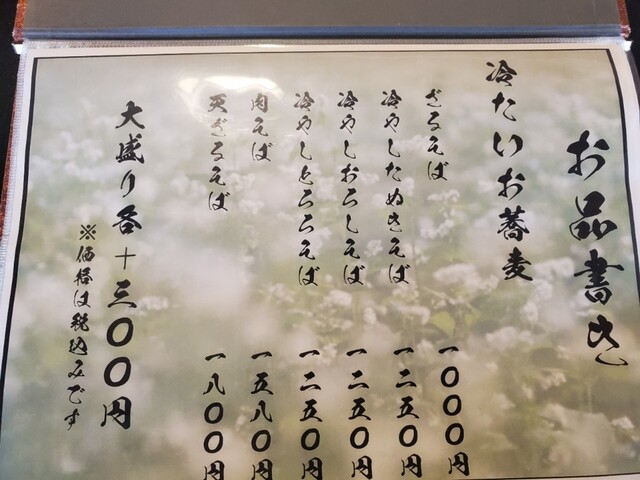 お品書き
冷たいお蕎麦
ざるそば 一〇〇〇円
冷やしたぬきそば 一二五〇円
冷やしおろしそば 一二五〇円
冷やしとろろそば 一二五〇円
肉そば 一五八〇円
天ざるそば 一八〇〇円
大盛り各+三〇〇円
※価格は税込みです